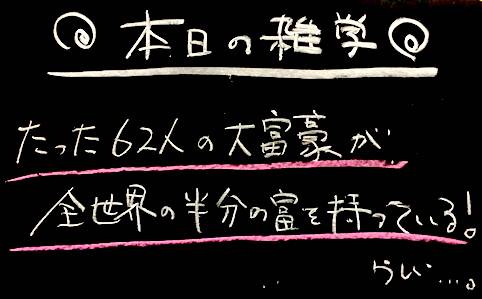 本日の雑学
たった62人の大富豪が
全世界の半分の富を持っている!
らしい…。